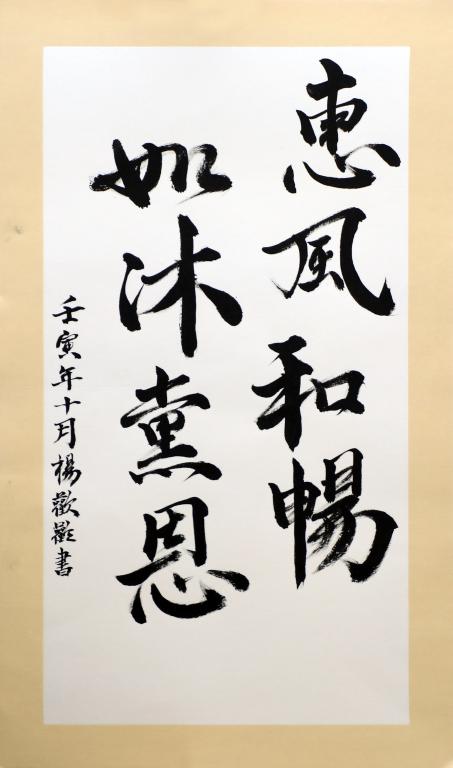 惠風和暢
如沐黨恩
壬寅年十月楊歡歡書